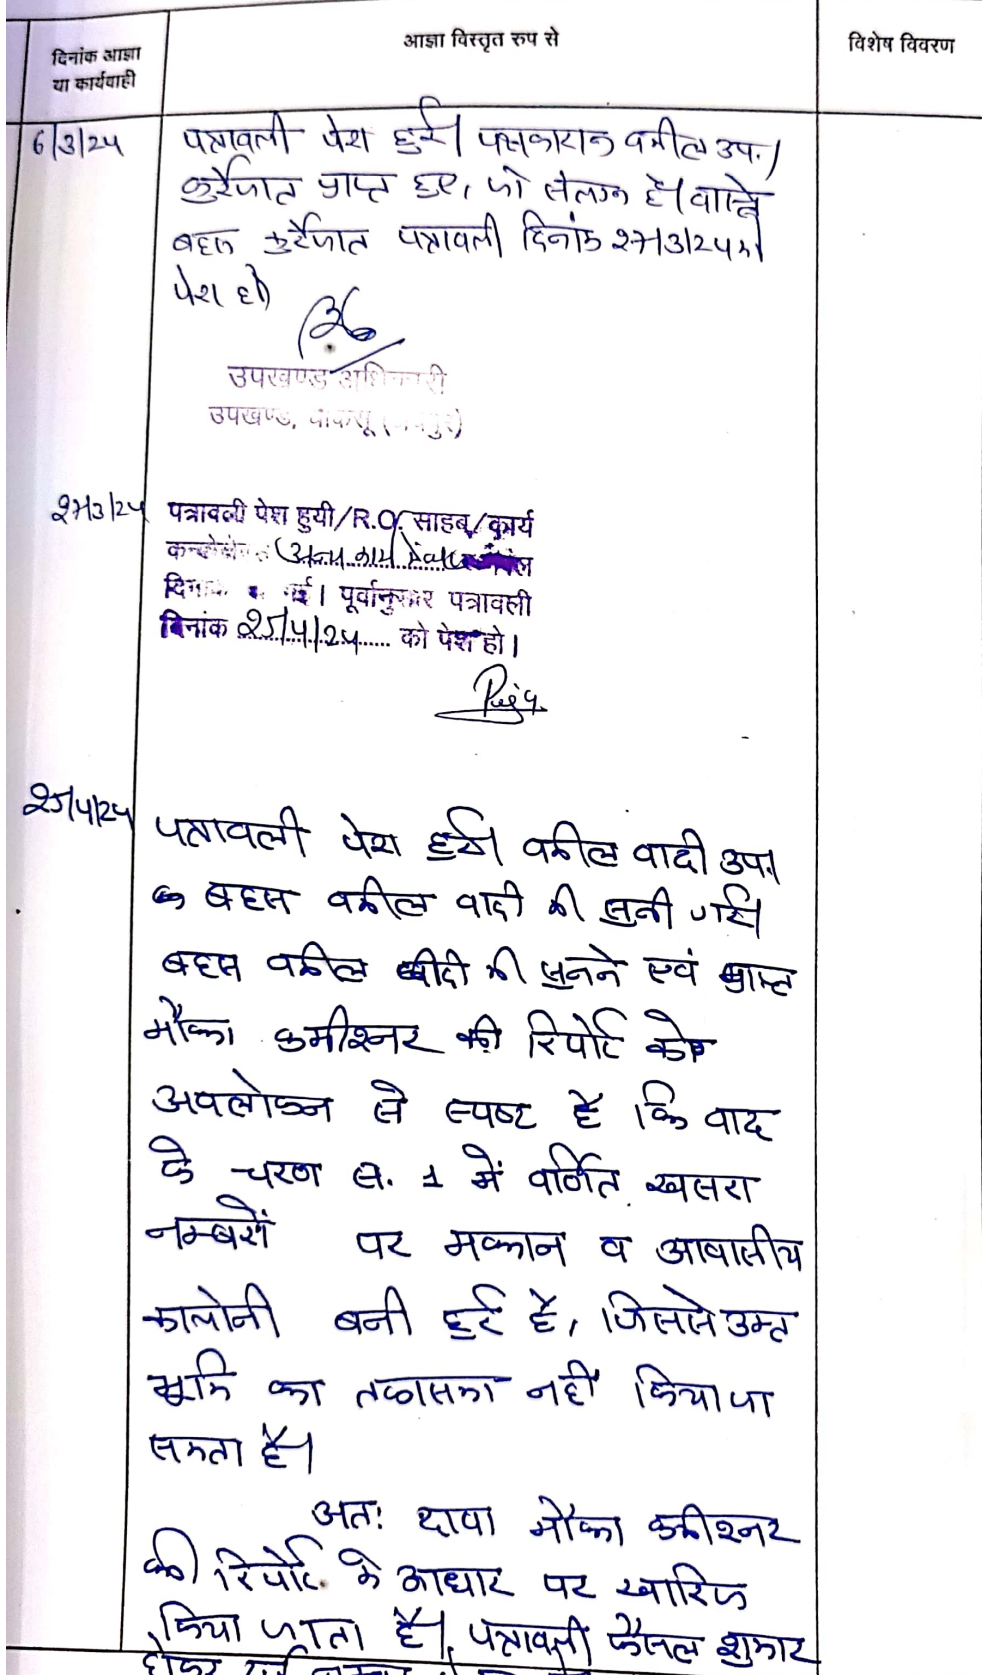 दिनांक आज्ञा
या कार्यवाही
आज्ञा विस्तृत रुप से
विशेष विवरण
6/3/24
पत्रावली पेश हुई। पक्षकारान वकील उप.।
कुर्रेजात प्राप्त हुए, जो संलग्न है। वास्ते
बहस कुर्रेजात पत्रावली दिनांक 27/3/24 को
पेश हो
उपखण्ड अधिकारी
उपखण्ड, चाकसू (जयपुर)
27/3/24
पत्रावली पेश हुयी/R.O. साहब/कार्य
अन्य कार्य में
पूर्वानुसार पत्रावली
दिनांक 25/4/24 को पेश हो।
25/4/24
पत्रावली पेश हुई। वकील वादी उप.।
बहस वकील वादी की सुनी गई।
बहस वकील वादी की सुनने एवं प्राप्त
मौका कमीश्नर की रिपोर्ट के
अवलोकन से स्पष्ट है कि वाद
के चरण सं. 1 में वर्णित खसरा
नम्बरों पर मकान व आवासीय
कालोनी बनी हुई है, जिससे उक्त
भूमि का तकासमा नहीं किया जा
सकता है।
अतः दावा मौका कमीश्नर
की रिपोर्ट के आधार पर खारिज
किया जाता है। पत्रावली फैसल शुमार
होकर